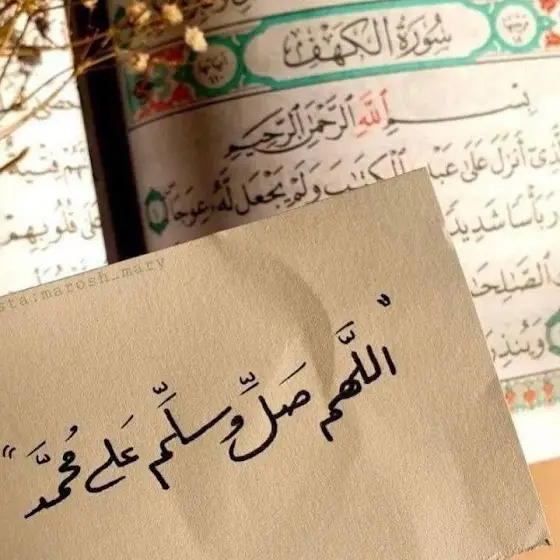 سُورَةُ الكَهْفِ
بِسْمِ اللَّهِ الرَّحْمَٰنِ الرَّحِيمِ
أَنزَلَ عَلَىٰ عَبْدِهِ الْكِتَابَ وَلَمْ يَجْعَل لَّهُ عِوَجًا ١
بَأْسًا شَدِيدًا
الصَّالِحَاتِ
وَيُنذِرَ
عَلَىٰ قُلُوبِهِمْ
sta:marosh_mary
"اللَّهم صَلِّ وسلِّم عَلى مُحمَّدَ"